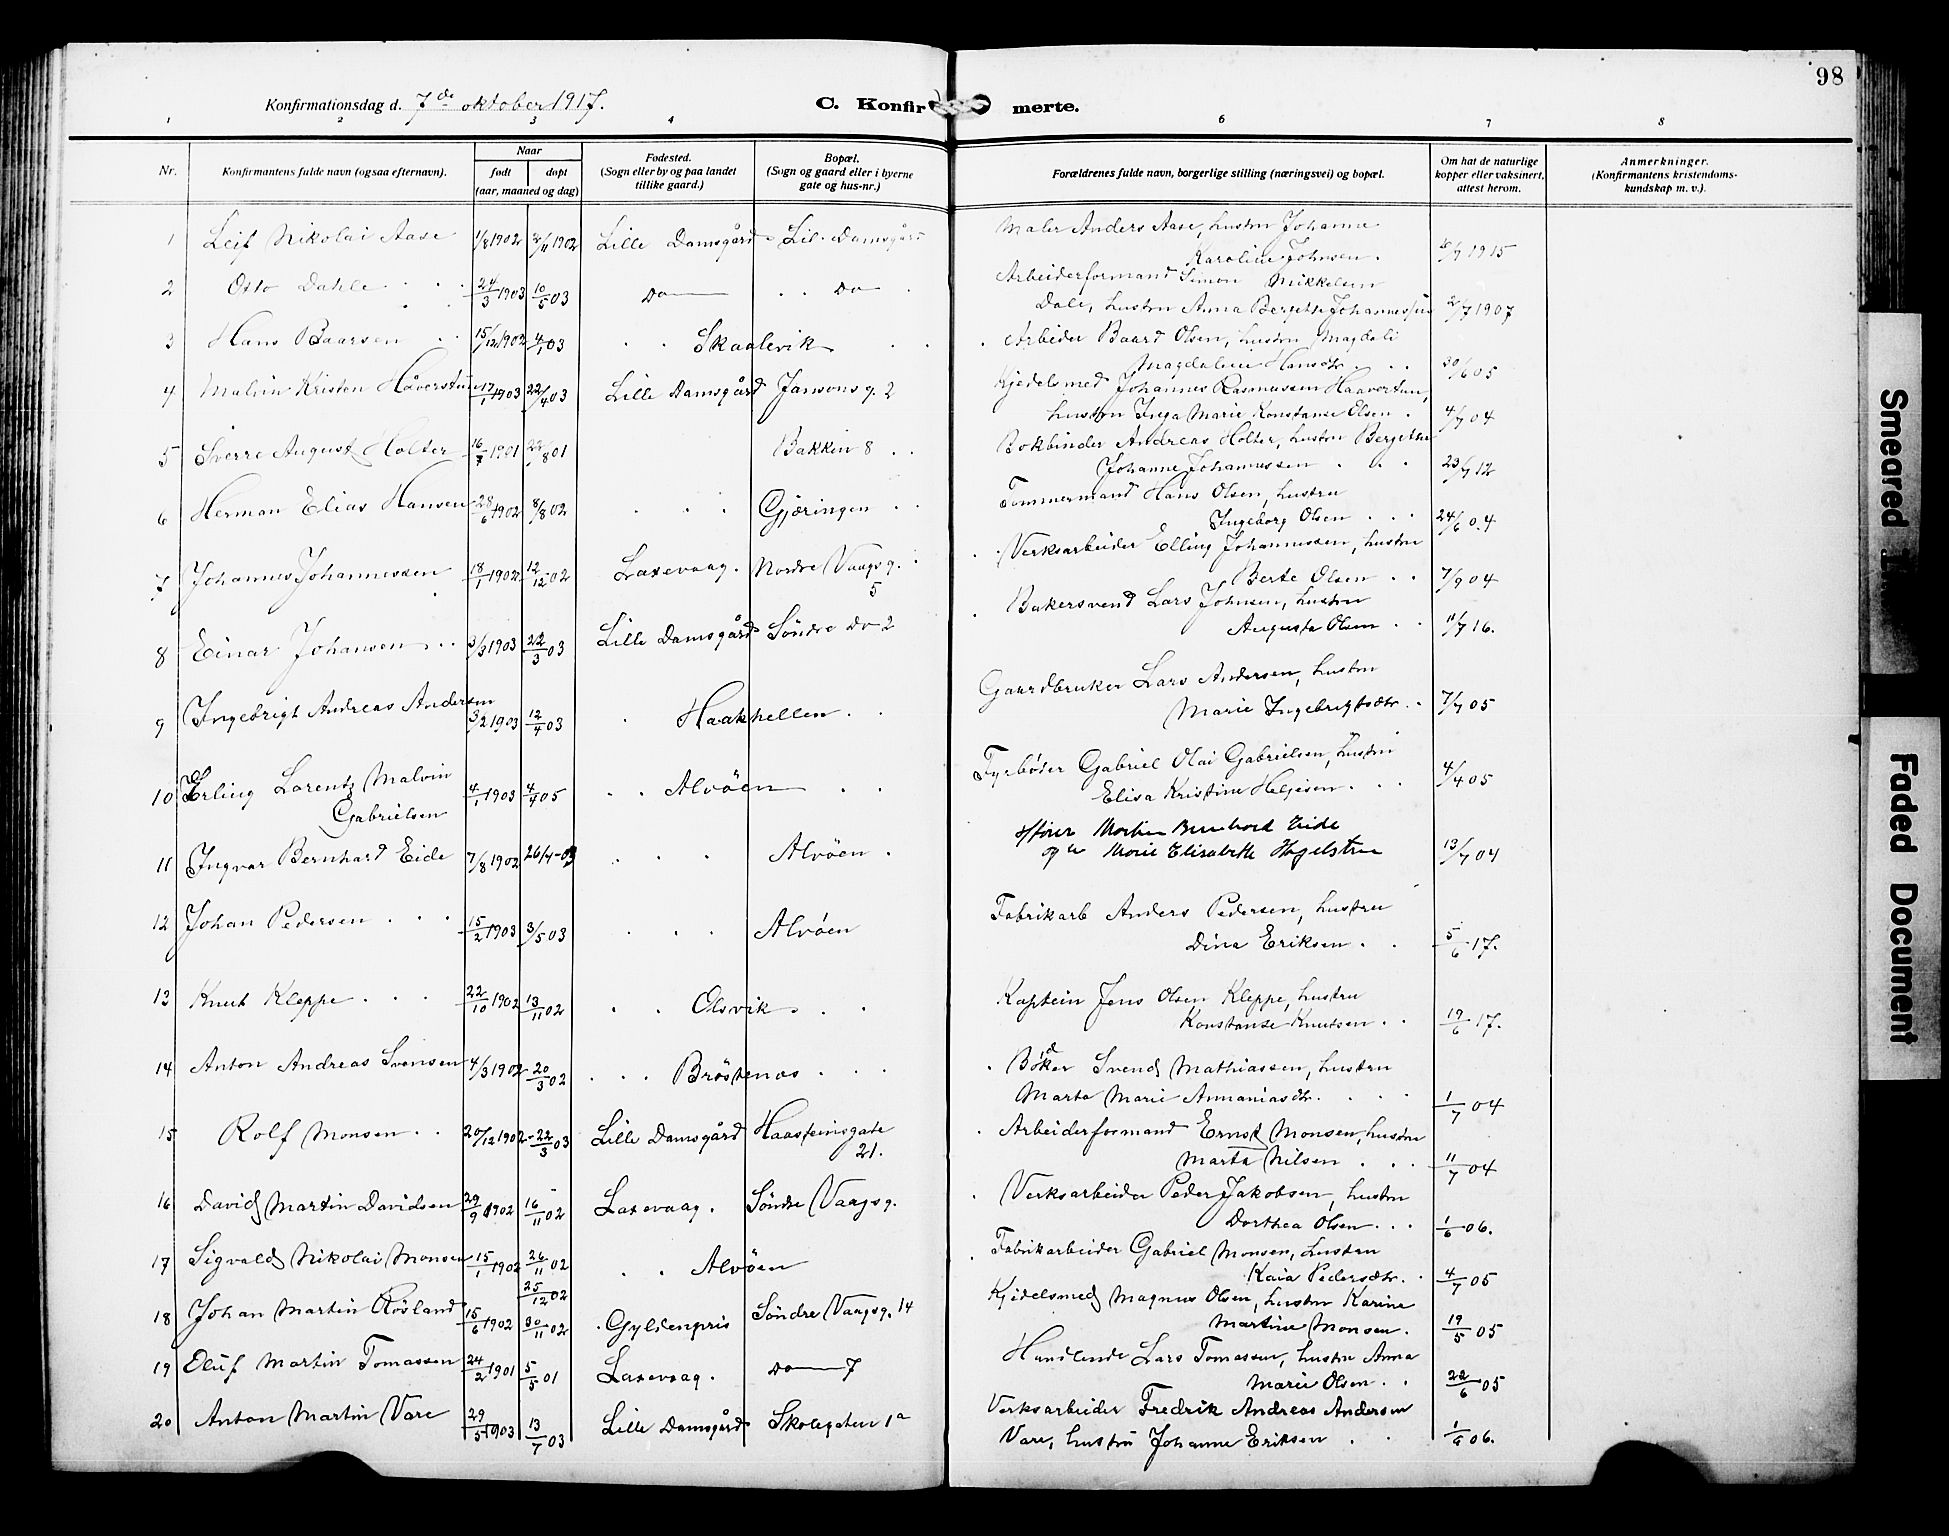 98
Konfirmationsdag d. 7de oktober 1917.
C. Konfirmerte.
1 2 3 4 6 7 8
Nr. Konfirmantens fulde navn (ogsaa efternavn). Naar født døpt (aar, maaned og dag) Fødested. (Sogn eller by og paa landet tillike gaard.) Bopæl. (Sogn og gaard eller i byerne gate og hus-nr.) Forældrenes fulde navn, borgerlige stilling (næringsvei) og bopæl. Om hat de naturlige kopper eller vaksinert, attest herom. Anmerkninger. (Konfirmantens kristendomskundskap m. v.).
1 Leif Nikolai Aase 1/8 1902 /11 1902 Lille Damsgård Lil. Damsgård Maler Anders Aase, hustru Johanne
Karoline Johnsen. /7 1915
2 Otto Dahle 24/3 1903 10/5 03 Do Do Arbeiderformand Simon Mikkelsen
Dale, hustru Anna Bergitte Johannessen 2/7 1907
3 Hans Baarsen 15/12 1902 4/1 03 Skaalevik Arbeider Baard Olsen, hustru Magdali
Magdaline Hansdtr 30/6 05
4 Malvin Kristen Håverstun 17/1 1903 22/4 03 Lille Damsgård Jansons g. 2 Kjedelsmed Johannes Rasmussen Haavertun,
hustru Inga Marie Konstanse Olsen 4/7 04
5 Sverre August Holter 16/7 1901 /8 01 Bakkin 8 Bokbinder Andreas Holter, hustru Bergitte
Johanne Johannessen 23/7 12
6 Herman Elias Hansen 28/6 1902 8/8 02 Gjæringen Tømmermand Hans Olsen, hustru
Ingeborg Olsen 24/6 04
7 Johannes Johannessen 18/1 1902 12/12 02 Laxevaag. Nordre Vaagsg. 5 Verksarbeider Elling Johannessen, hustru
Berte Olsen 7/9 04
8 Einar Johansen 3/3 1903 22/3 03 Lille Damsgård Söndre Do 2 Bakersvend Lars Johnsen, hustru
Augusta Olsen 11/7 16.
9 Ingebrigt Andreas Andersen 3/2 1903 12/4 03 Haakhellen Gaardbruker Lars Andersen, hustru
Marie Ingebrigtsdtr. 7/7 05
10 Erling Lorentz Malvin Gabrielsen 4/1 1903 4/4 05 Alvöen Fyrbøder Gabriel Olai Gabrielsen, hustru
Elisa Kristine Helgesen 4/4 05
11 Ingvar Bernhard Eide 7/8 1902 26/4-03 Alvöen Morten Bernhard Eide
og Marie Elisabeth 13/7 04
12 Johan Pedersen 15/2 1903 3/5 03 Alvöen Fabrikarb Anders Pedersen, hustru
Dina Eriksen 5/6 17.
13 Knut Kleppe 22/10 1902 13/11 02 Olsvik Kaptein Jens Olsen Kleppe, hustru
Konstanse Knutsen 19/6 17.
14 Anton Andreas Svensen 4/3 1902 20/3 02 Bröstenæs Bödker Svend Mathiassen, hustru
Marta Marie Annaniasdtr. 1/7 04
15 Rolf Monsen 20/12 1902 22/3 03 Lille Damsgård Haasteinsgate 21. Arbeiderformand Ernst Monsen, hustru
Marta Nilsen 11/7 04
16 David Martin Davidsen 29/9 1902 16/11 02 Laxevaag. Söndre Vaagsg. Verksarbeider Peder Jakobsen, hustru
Dorthea Olsen 1/6 06.
17 Sigvald Nikolai Monsen 15/1 1902 26/11 02 Alvöen Fabrikarbeider Gabriel Monsen, hustru
25/12 02 Kaia Pedersdtr. 4/7 05
18 Johan Martin Røsland 15/6 1902 30/11 02 Gyldenpris Söndre Vaagsg. 14 Kjedelsmed Magnus Olsen, hustru Karine
Martine Monsen. 19/5 05
19 Oluf Martin Tomassen 24/2 1901 5/5 01 Laxevaag. Do 7 Handlende Lars Tomassen, hustru Anna
Marie Olsen 22/6 05
20 Anton Martin Vare 29/5 1903 13/7 03 Lille Damsgård Skolegaten 1a Verksarbeider Fredrik Andreas Andersen
Vare, hustru Johanne Eriksen 1/6 06.
Smeared
Faded Document